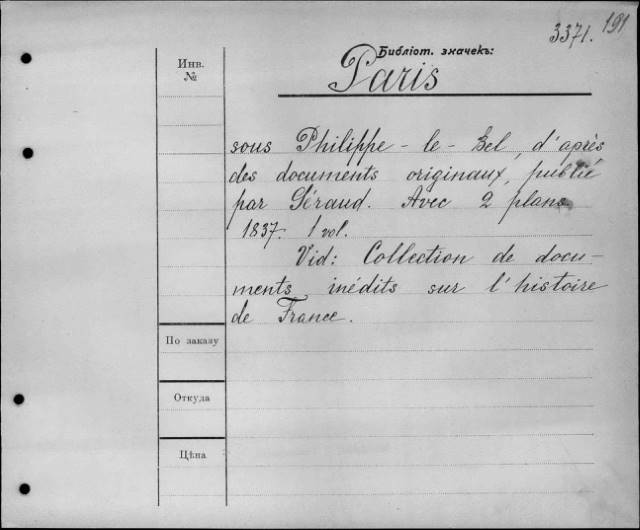 3371. 191
Библіот. значекъ:
Инв.
№
Paris
sous Philippe-le-Bel, d'après
des documents originaux, publié
par Géraud. Avec 2 plans
1837. 1 vol.
Vid: Collection de docu-
ments inédits sur l'histoire
de France.
По заказу
Откуда
Цѣна